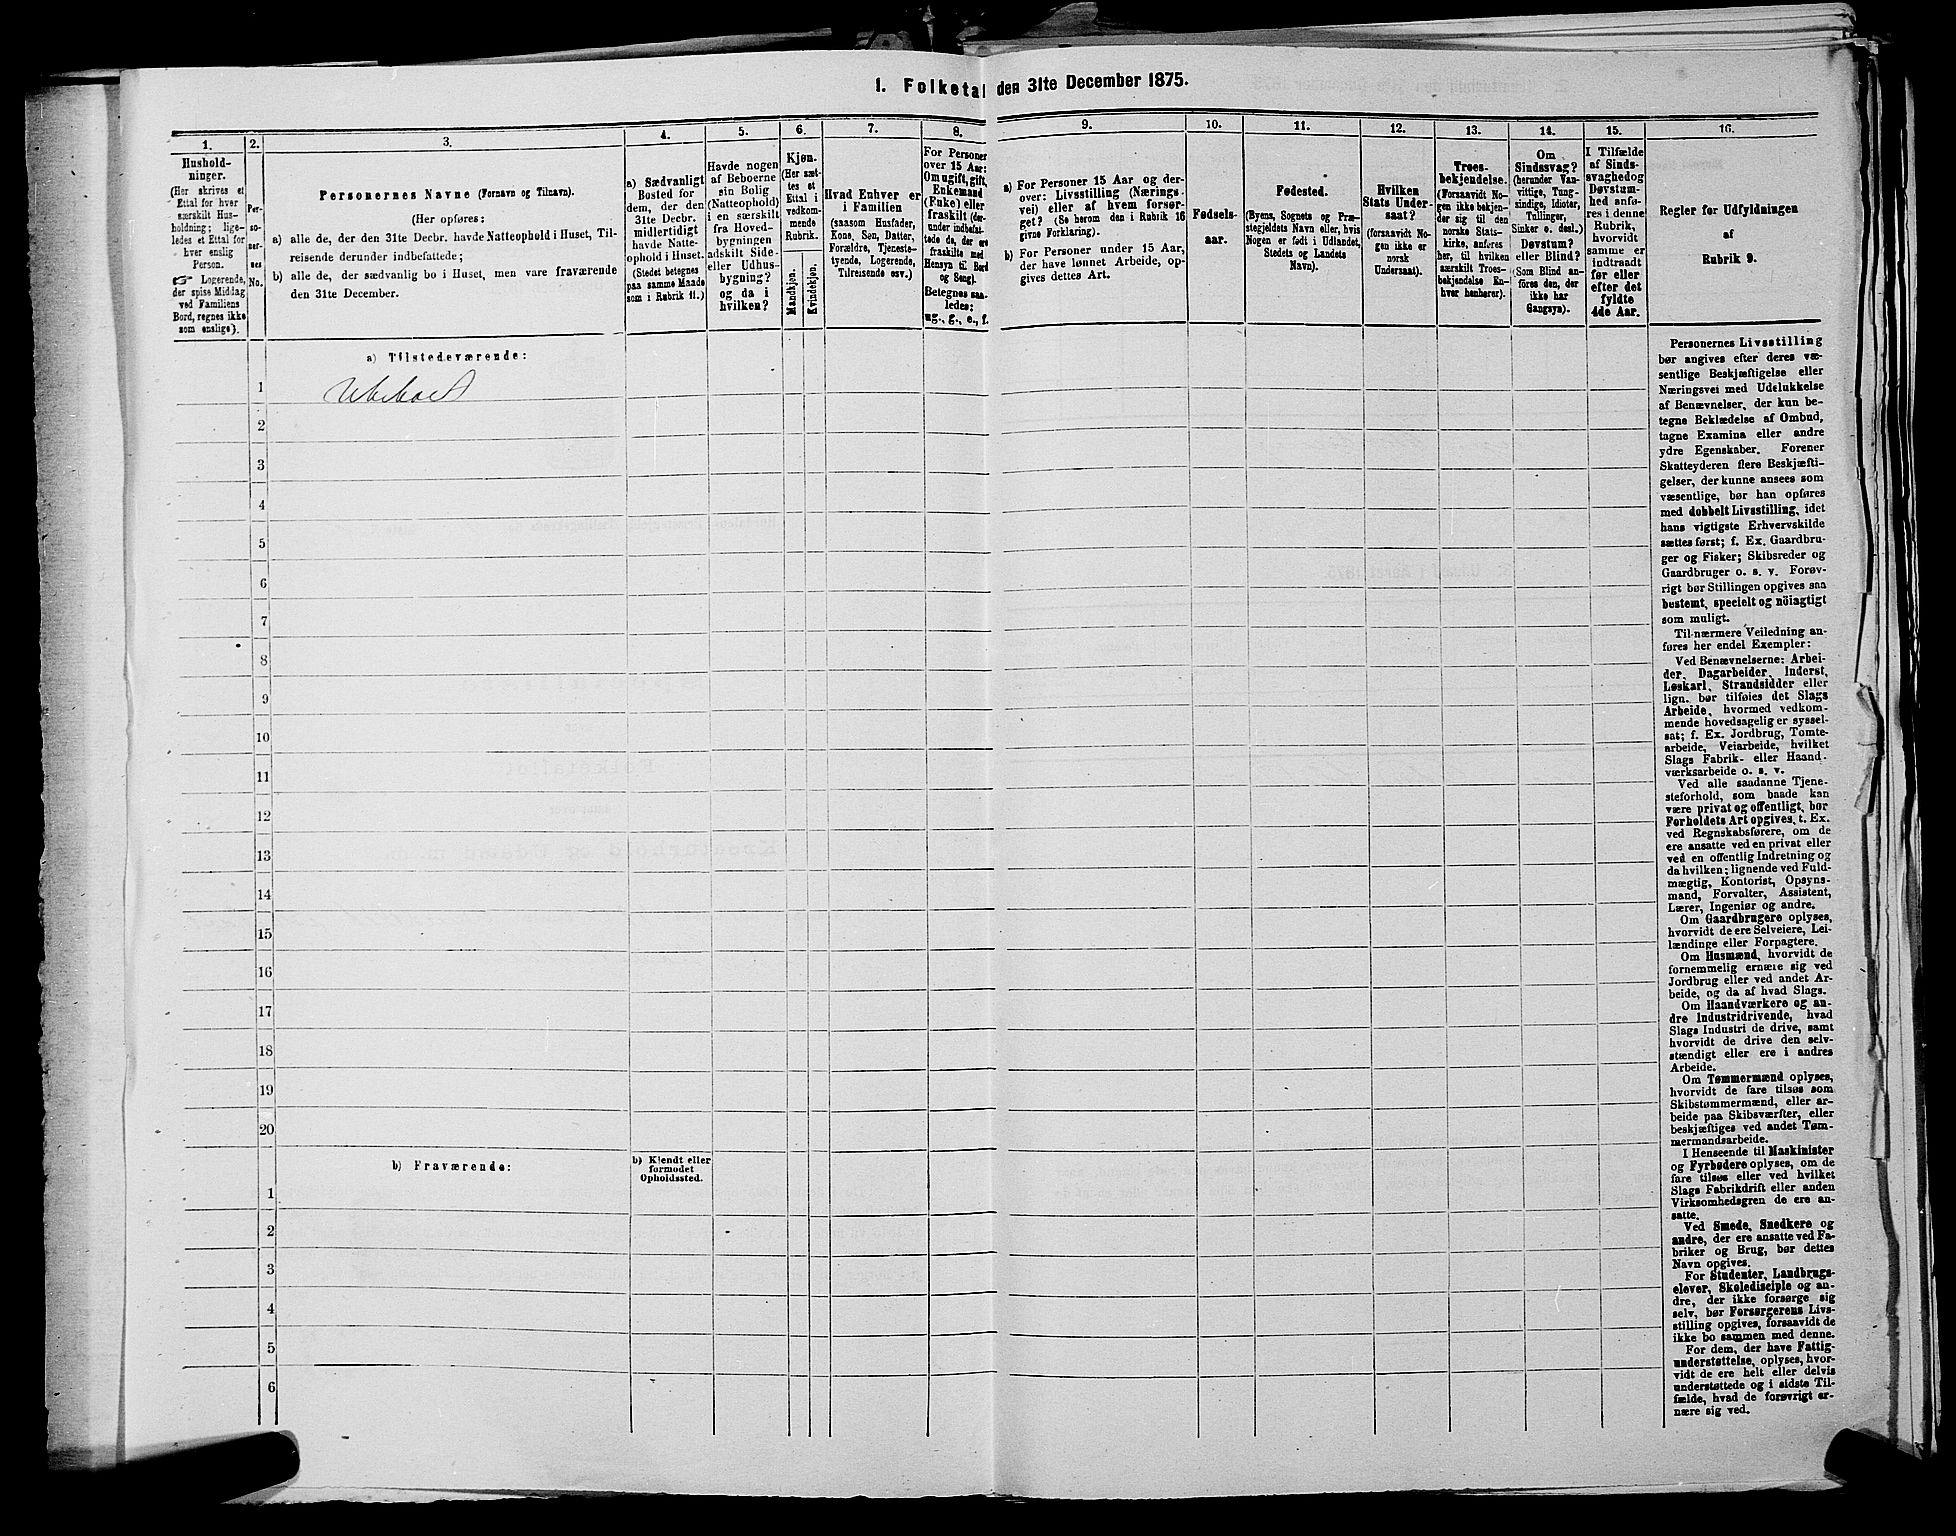 1. Folketal den 31te December 1875.
1.
Hushold-
ninger.
(Her skrives et
Ettal for hver
særskilt Hus-
holdning; lige-
ledes et Ettal for
hver enslig
Person.
☞ Logerende,
der spise Middag
ved Familiens
Bord, regnes ikke
som enslige).
2.
Per-
so-
ner-
nes
No.
3.
Personernes Navne (Fornavn og Tilnavn).
(Her opføres:
a) alle de, der den 31te Decbr. havde Natteophold i Huset, Til-
reisende derunder indbefattede;
b) alle de, der sædvanlig bo i Huset, men vare fraværende
den 31te December.
4.
a) Sædvanligt
Bosted for
dem, der den
31te Decbr.
midlertidigt
havde Natte-
ophold i Huset.
(Stedet betegnes
paa samme Maade
som i Rubrik 11.)
5.
Havde nogen
af Beboerne
sin Bolig
(Natteophold)
i en særskilt
fra Hoved-
bygningen
adskilt Side-
eller Udhus-
bygning?
og da i
hvilken?
6.
Kjøn.
(Her sæt-
tes et
Ettal i
vedkom-
mende
Rubrik.
Mandkjøn.
Kvindekjøn.
7.
Hvad Enhver er
i Familien
(saasom Husfader,
Kone, Søn, Datter,
Forældre, Tjeneste-
tyende, Logerende,
Tilreisende osv.)
8.
For Personer
over 15 Aar:
Om ugift, gift,
Enkemand
(Enke) eller
fraskilt (der-
under indbefat-
tede da, der ere
fraskilte med
Hensyn til Bord
og Seng).
Betegnes saa-
ledes:
ug., g., e., f.
9.
a) For Personer 15 Aar og der-
over: Livsstilling (Nærings-
vei) eller af hvem forsør-
get? (Se herom den i Rubrik 16
givne Forklaring).
b) For Personer under 15 Aar,
der have lønnet Arbeide, op-
gives dettes Art.
10.
Fødsels-
aar.
11.
Fødested.
(Byens, Sognets og Præ-
stegjeldets Navn eller, hvis
Nogen er født i Udlandet,
Stedets og Landets
Navn).
12.
Hvilken
Stats Under-
saat?
(forsaavidt No-
gen ikke er
norsk
Undersaat).
13.
Troes-
bekjendelse.
(Forsaavidt No-
gen ikke bekjen-
der sig til den
norske Stats-
kirke, anføres
her, til hvilken
særskilt Troes-
bekjendelse En-
hver henhører).
14.
Om
Sindssvag?
(herunder Van-
vittige, Tung-
sindige, Idioter,
Tullinger,
Sinker o. desl.)
Døvstum?
eller Blind?
(Som Blind an-
føres den, der
ikke har
Gangsyn).
15.
I Tilfælde
af Sinds-
svaghed og
Døvstum-
hed anfø-
res i denne
Rubrik,
hvorvidt
samme er
indtraadt
før eller
efter det
fyldte
4de Aar.
16.
Regler for Udfyldningen
af
Rubrik 9.
a) Tilstedeværende:
1
Ubeboet
2
3
4
5
6
7
8
9
10
11
12
13
14
15
16
17
18
19
20
b) Fraværende:
b) Kjendt eller
formodet
Opholdssted.
1
2
3
4
5
6
Personernes Livsstilling
bør angives efter deres væ-
sentlige Beskjæftigelse eller
Næringsvei med Udelukkelse
af Benævnelser, der kun be-
tegne Beklædelse af Ombud,
tagne Examina eller andre
ydre Egenskaber. Forener
Skatteyderen flere Beskjæfti-
gelser, der kunne ansees som
væsentlige, bør han opføres
med dobbelt Livsstilling, idet
hans vigtigste Erhvervskilde
sættes først; f. Ex. Gaardbru-
ger og Fisker; Skibsreder og
Gaardbruger o. s. v. Forøv-
rigt bør Stillingen opgives saa
bestemt, specielt og nöiagtigt
som muligt.
Til nærmere Veiledning an-
føres her endel Exempler:
Ved Benævnelserne: Arbei-
der, Dagarbeider, Inderst,
Løskarl, Strandsidder eller
lign. bør tilføies det Slags
Arbeide, hvormed vedkom-
mende hovedsagelig er syssel-
sat; f. Ex. Jordbrug, Tomte-
arbeide, Veiarbeide, hvilket
Slags Fabrik- eller Haand-
værksarbeide o. s. v.
Ved alle saadanne Tjene-
steforhold, som baade kan
være privat og offentligt, bør
Forholdets Art opgives, t. Ex.
ved Regnskabsførere, om de
ere ansatte ved en privat eller
ved en offentlig Indretning og
da hvilken; lignende ved Fuld-
mægtig, Kontorist, Opsyns-
mand, Forvalter, Assistent,
Lærer, Ingeniør og andre.
Om Gaardbrugere oplyses,
hvorvidt de ere Selveiere, Lei-
lændinge eller Forpagtere.
Om Husmænd, hvorvidt de
fornemmelig ernære sig ved
Jordbrug eller ved andet Ar-
beide, og da af hvad Slags.
Om Haandværkere og an-
dre Industridrivende, hvad
Slags Industri de drive, samt
hvorvidt de drive den selv-
stændigt eller ere i andres
Arbeide.
Om Tømmermænd oplyses,
hvorvidt de fare tilsøs som
Skibstømmermænd, eller ar-
beide paa Skibsværfter, eller
beskjæftiges ved andet Tøm-
mermandsarbeide.
I Henseende til Maskinister
og Fyrbødere oplyses, om de
fare tilsøs eller ved hvilket
Slags Fabrikdrift eller anden
Virksomhedsgren de ere an-
satte.
Ved Smede, Snedkere og
andre, der ere ansatte ved Fa-
briker og Brug, bør dettes
Navn opgives.
For Studenter, Landbrugs-
elever, Skoledisciple og an-
dre, der ikke forsørge sig
selv, bør Forsørgerens Livs-
stilling opgives, forsaavidt de
ikke bo sammen med denne.
For dem, der have Fattig-
understøttelse, oplyses, hvor-
vidt de ere helt eller delvis
understøttede og i sidste Til-
fælde, hvad de forøvrigt er-
nære sig ved.